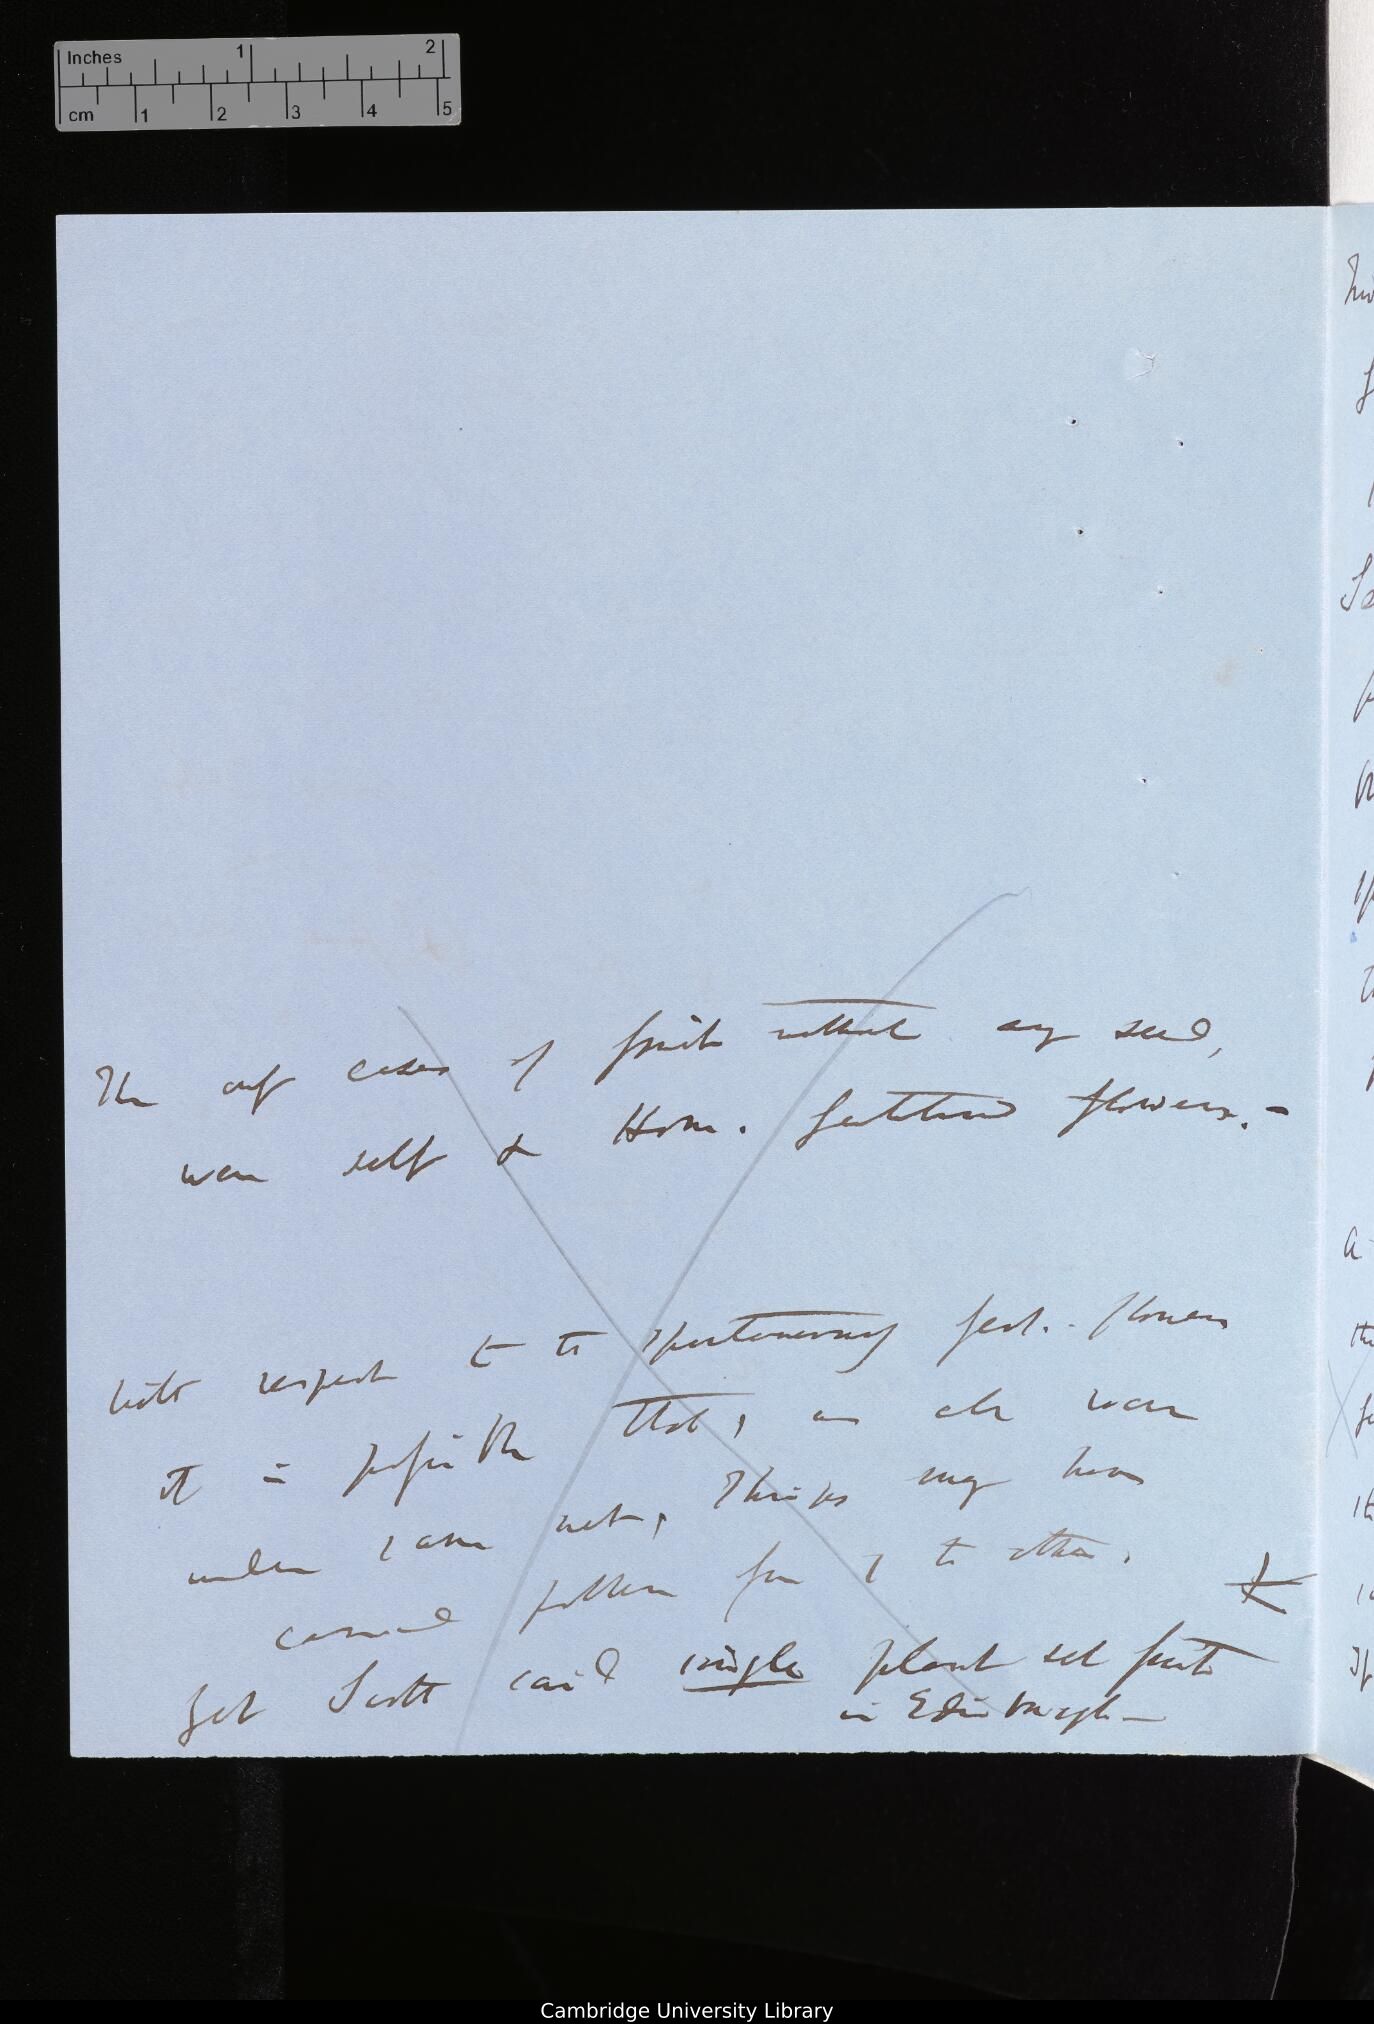 Inches 1 2
cm 1 2 3 4 5
The only cases of fruit without any seed,
were self & Hom. fertilised flowers. -
With respect to the spontaneously fert. flowers
it is possible that, as all were
under same net, Thrips may have
carried pollen from one to other.
Yet Scott said single plant set fruit
in Edinburgh —
Cambridge University Library